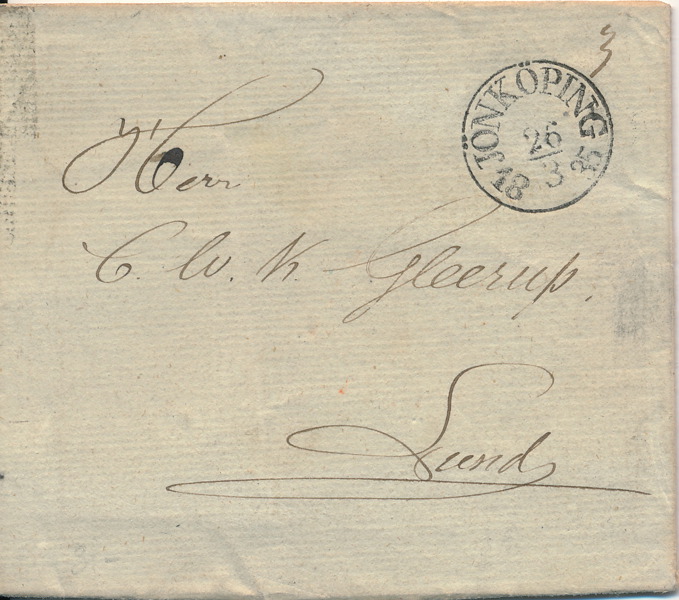 3
JÖNKÖPING
26
3
18 35
Herr
C. W. K. Gleerup.
Lund